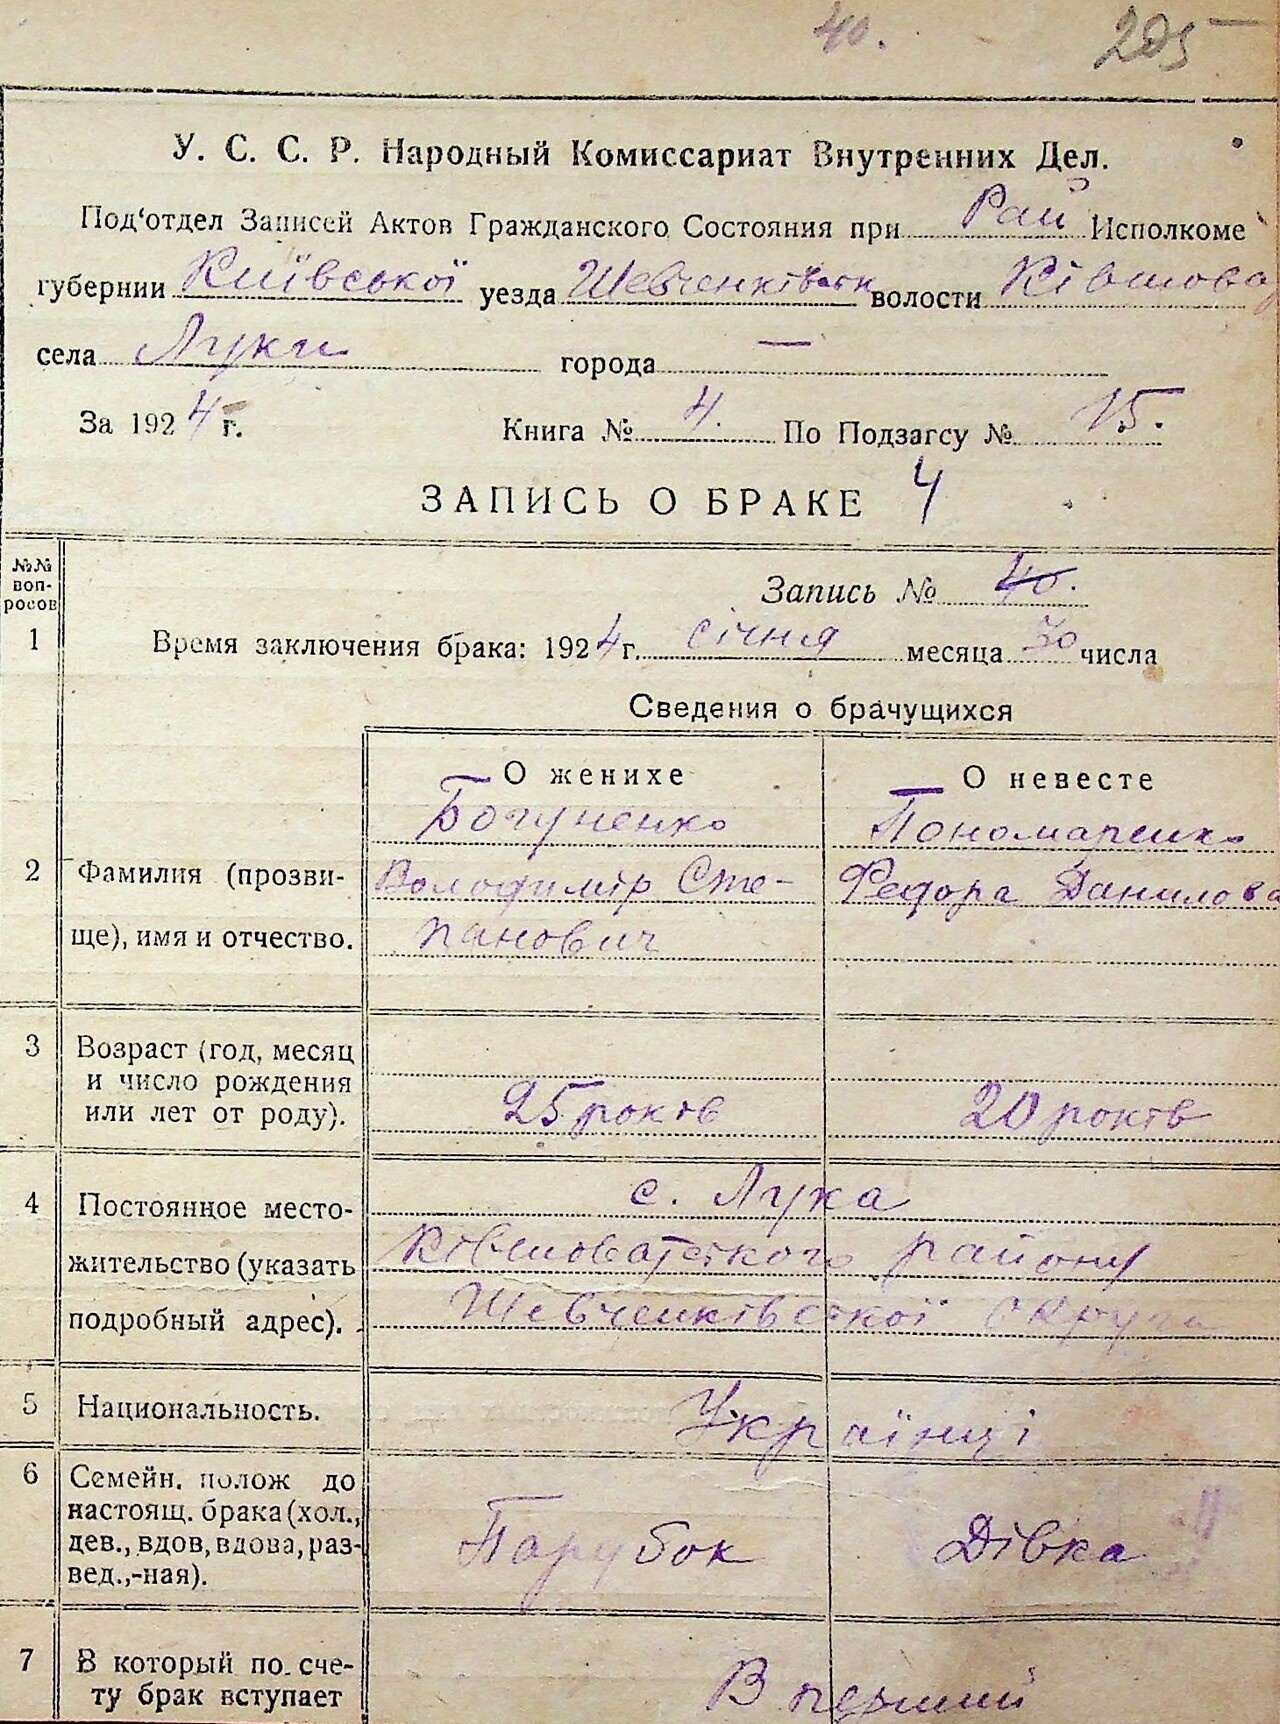 40. 205
У. С. С. Р. Народный Комиссариат Внутренних Дел.
Под‘отдел Записей Актов Гражданского Состояния при Рай Исполкоме
губернии Київської уезда Шевченківськ волости Ківшова
села Луки города —
За 1924 г. Книга № 4. По Подзагсу № 15.
ЗАПИСЬ О БРАКЕ 4
№№ воп-росов
Запись № 40.
1 Время заключения брака: 1924 г. січня месяца 30 числа
Сведения о брачущихся
О женихе О невесте
Богуненко Пономаренко
2 Фамилия (прозви- Володимір Сте- Федора Данилова
ще), имя и отчество. панович
3 Возраст (год, месяц
и число рождения
или лет от роду). 25 років 20 років
4 Постоянное место- с. Лука
жительство (указать Ківшоватського району
подробный адрес). Шевченківської округи
5 Национальность. Українці
6 Семейн. полож до
настоящ. брака (хол.,
дев., вдов, вдова, раз- Парубок Дівка
вед.,-ная).
7 В который по сче- В перший
ту брак вступает